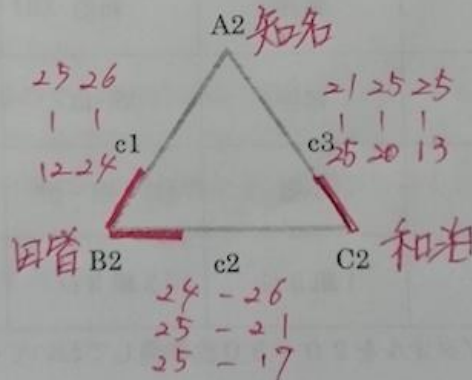 A2 知名
25 26
| |
12 24
c1
21 25 25
| | |
25 20 13
c3
田皆 B2
c2
C2 和泊
24 - 26
25 - 21
25 - 17